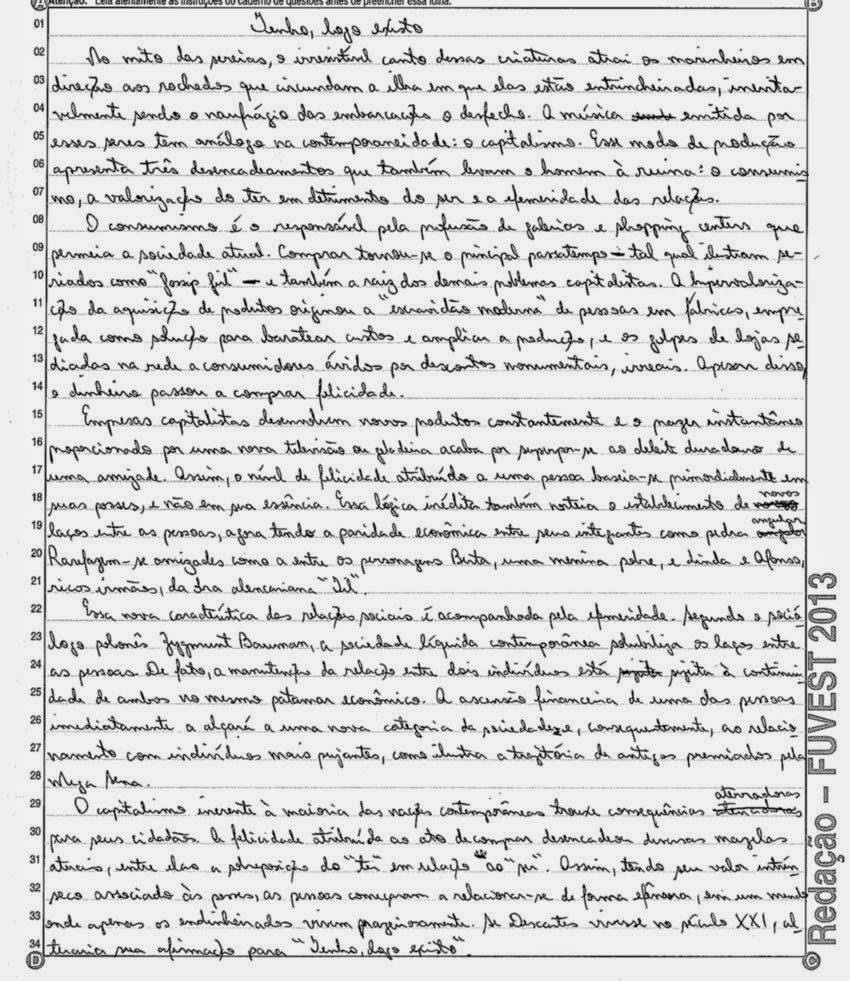 Atenção: Leia atentamente as instruções do caderno de questões antes de preencher essa folha.
A
B
01 Tenho, logo existo
02 No mito das sereias, o irresistível canto dessas criaturas atrai os marinheiros em
03 direção aos rochedos que circundam a ilha em que elas estão entrincheiradas, inevita-
04 velmente sendo o naufrágio das embarcações o desfecho. A música emitida por
05 esses seres tem análogo na contemporaneidade: o capitalismo. Esse modo de produção
06 apresenta três desencadeamentos que também levam o homem à ruína: o consumis
07 mo, a valorização do ter em detrimento do ser e a efemeridade das relações.
08 O consumismo é o responsável pela profusão de galerias e shopping centers que
09 permeia a sociedade atual. Comprar tornou-se o principal passatempo – tal qual ilustram se-
10 riados como "Gossip Girl" – e também a raiz dos demais problemas capitalistas. A hipervaloriza-
11 ção da aquisição de produtos originou a "escravidão moderna" de pessoas em fábricas, empre
12 gada como solução para baratear custos e ampliar a produção, e os golpes de lojas se
13 diadas na rede a consumidores ávidos por descontos monumentais, irreais. Apesar disso,
14 o dinheiro passou a comprar felicidade.
15 Empresas capitalistas desenvolvem novos produtos constantemente e o prazer instantâneo
16 proporcionado por uma nova televisão ou geladeira acaba por superpor-se ao deleite duradouro de
17 uma amizade. Assim, o nível de felicidade atribuído a uma pessoa baseia-se primordialmente em
18 suas posses, e não em sua essência. Essa lógica inédita também norteia o estabelecimento de novos
19 laços entre as pessoas, agora tendo a paridade econômica entre seus integrantes como pedra angular
20 Rarefazem-se amizades como a entre os personagens Berta, uma menina pobre, e Linda e Afonso,
21 ricos irmãos, da obra alencariana "Til".
22 Essa nova característica das relações sociais é acompanhada pela efemeridade. Segundo o soció
23 logo polonês Zygmunt Bauman, a sociedade líquida contemporânea solubiliza os laços entre
24 as pessoas. De fato, a manutenção da relação entre dois indivíduos está sujeita à continui
25 dade de ambos no mesmo patamar econômico. A ascensão financeira de uma das pessoas
26 imediatamente a alçará a uma nova categoria da sociedade e, consequentemente, ao relacio
27 namento com indivíduos mais pujantes, como ilustra a trajetória de antigos premiados pela
28 Mega Sena.
29 O capitalismo inerente à maioria das nações contemporâneas trouxe consequências aterradoras
30 para seus cidadãos. A felicidade atribuída ao ato de comprar desencadeou diversas mazelas
31 atuais, entre elas a sobreposição do "ter" em relação ao "ser". Assim, tendo seu valor intrín
32 seco associado às posses, as pessoas começaram a relacionar-se de forma efêmera, em um mundo
33 onde apenas os endinheirados vivem prazerosamente. Se Descartes vivesse no século XXI, al
34 teraria sua afirmação para "Tenho, logo existo".
D
C
Redação – FUVEST 2013